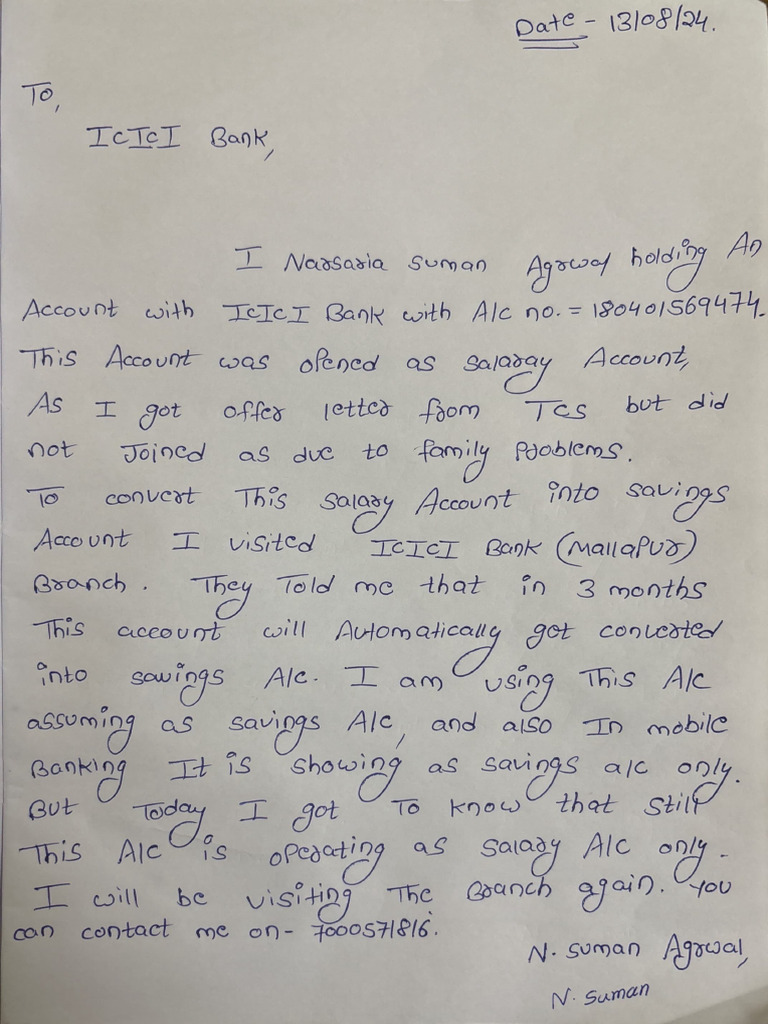 Date - 13/08/24.
To,
ICICI Bank,
I Narsaria suman Agrwal holding An
Account with ICICI Bank with A/c no. = 180401569474.
This Account was opened as salaray Account,
As I got offer letter from TCS but did
not Joined as due to family problems.
To convert This salary Account into savings
Account I visited ICICI Bank (Mallapur)
Branch. They Told me that in 3 months
This account will Automatically got converted
into savings A/c. I am using This A/c
assuming as savings A/c, and also In mobile
Banking It is showing as savings a/c only.
But Today I got To know that still
This A/c is operating as salary A/c only.
I will be visiting The Branch again. You
can contact me on- 7000571816.
N. Suman Agrwal,
N. Suman